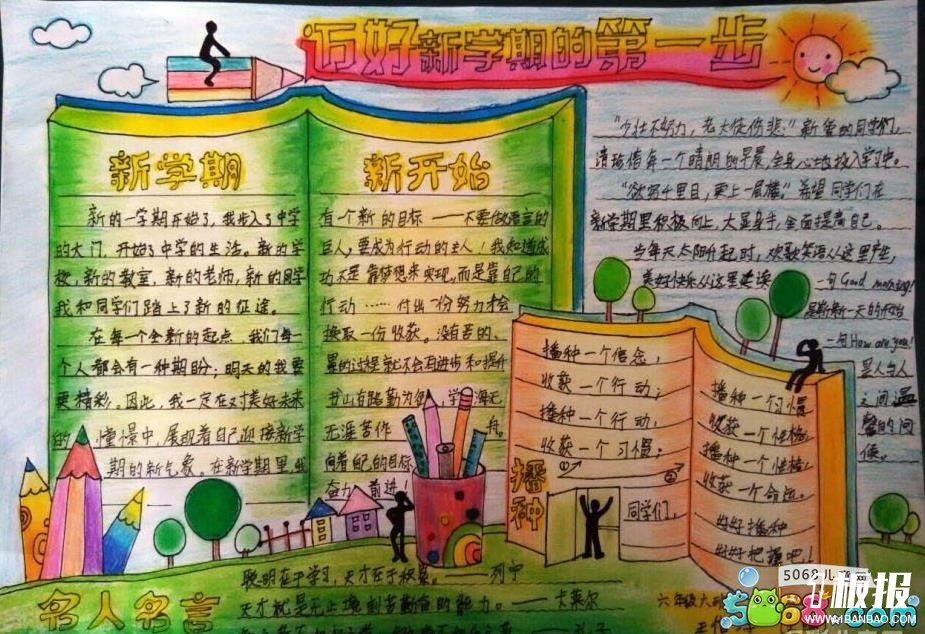 迈好新学期的第一步
新学期
新的一学期开始了,我步入了中学
的大门,开始了中学的生活。新的学
校,新的教室,新的老师,新的同学
我和同学们踏上了新的征途。
在每一个全新的起点,我们每一
个人都会有一种期盼;明天的我要
更精彩。因此,我一定在对美好未来
的憧憬中,展现着自己迎接新学
期的新气象。在新学期里,我
新开始
有一个新的目标——不要做语言的
巨人,要成为行动的主人!我知道成
功不是靠梦想来实现,而是靠自己的
行动……付出一份努力才会
换取一份收获。没有苦的、
累的过程就不会有进步和提升
书山有路勤为径,学海无
无涯苦作舟。
向着自己的目标
奋力前进!
“少壮不努力,老大徒伤悲”新堡的同学们,
请珍惜每一个晴朗的早晨,全身心地投入学习中。
“欲穷千里目,更上一层楼”。希望同学们在
新学期里积极向上,大显身手,全面提高自己。
当每天太阳升起时,欢歌笑语从这里产生,
美好快乐从这里连读
一句Good morning!
是崭新一天的开始
一句How are you!
是人与人
之间温
馨的问
候。
播种一个信念,
收获一个行动;
播种一个行动,
收获一个习惯;
播种
同学们,
播种一个习惯
收获一个性格,
播种一个性格,
收获一个命运。
好好播种
好好把握吧!
名人名言
聪明在于学习,天才在于积累。——列宁
天才就是无止境刻苦勤奋的能力。——卡莱尔
5068儿童网
板报
www.41BANBAO.COM